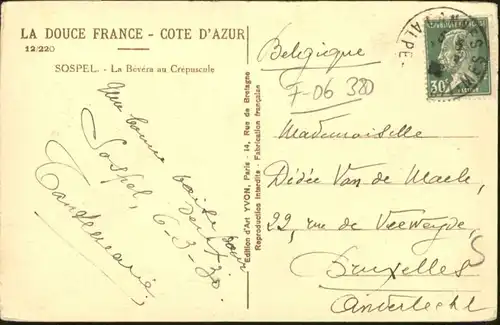 LA DOUCE FRANCE - COTE D'AZUR
12/220
SOSPEL. - La Bévéra au Crépuscule
Une bonne
Sospel,
6-3-30.
Edition d'Art YVON, Paris - 14, Rue de Bretagne
Reproduction Interdite - Fabrication française
Belgique
F-06 320
Mademoiselle
Didée Van de Maele,
22, rue de Verweyde,
Bruxelles
Anderlecht
30